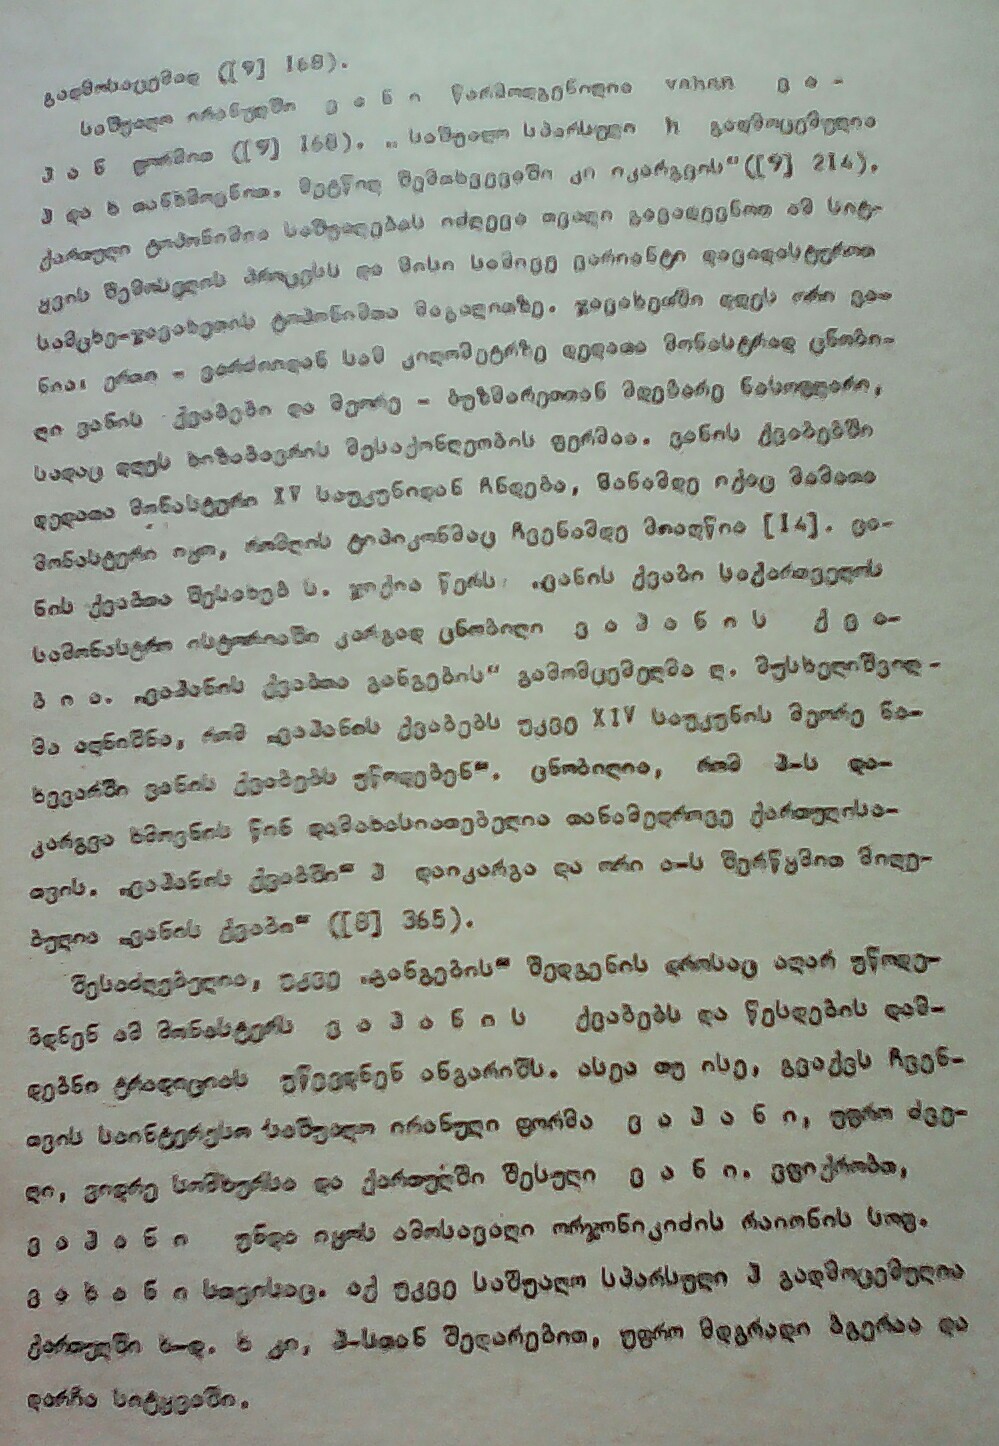 გადმოსაცემად ([9] 168).
საშუალო ირანულში ვ ა ნ ი წარმოდგენილია vahan ვ ა -
ჰ ა ნ ფორმით ([9] 168). „ საშუალო სპარსული h გადმოცემულია
ჰ და ხ თანხმოვნით. მეტწილ შემთხვევაში კი იკარგვის“ ([9] 214).
ქართული ტოპონიმია საშუალებას იძლევა თვალი გავადევნოთ ამ სიტ-
ყვის შემოსვლის პროცესს და მისი სამივე ვარიანტი დავადასტუროთ
სამცხე-ჯავახეთის ტოპონიმთა მაგალითზე. ჯავახეთში დღეს ორი ვა-
ნია: ერთი - ვარძიიდან სამ კილომეტრზე დედათა მონასტრად ცნობი-
ლი ვანის ქვაბები და მეორე - ბუზმარეთთან მდებარე ნასოფლარი,
სადაც დღეს ხიზაბავრის მესაქონლეობის ფერმაა. ვანის ქვაბებში
დედათა მონასტერი XV საუკუნიდან ჩნდება, მანამდე იქაც მამათა
მონასტერი იყო, რომლის ტიპიკონმაც ჩვენამდე მოაღწია [14]. ვა-
ნის ქვაბთა შესახებ ს. ჯიქია წერს: „ვანის ქვაბი საქართველოს
სამონასტრო ისტორიაში კარგად ცნობილი ვ ა ჰ ა ნ ი ს ქ ვ ა -
ბ ი ა. „ვაჰანის ქვაბთა განგების“ გამომცემელმა ლ. მუსხელიშვილ-
მა აღნიშნა, რომ „ვაჰანის ქვაბებს უკვე XIV საუკუნის მეორე ნა-
ხევარში ვანის ქვაბებს უწოდებენ“. ცნობილია, რომ ჰ-ს და-
კარგვა ხმოვნის წინ დამახასიათებელია თანამედროვე ქართულისა-
თვის. „ვაჰანის ქვაბში“ ჰ დაიკარგა და ორი ა-ს შერწყმით მიღე-
ბულია „ვანის ქვაბი“ ([8] 365).
შესაძლებელია, უკვე „განგების“ შედგენის დროსაც აღარ უწოდე-
ბდნენ ამ მონასტერს ვ ა ჰ ა ნ ი ს ქვაბებს და წესდების დამ-
დებნი ტრადიციას უწევდნენ ანგარიშს. ასეა თუ ისე, გვაქვს ჩვენ-
თვის საინტერესო საშუალო ირანული ფორმა ვ ა ჰ ა ნ ი, უფრო ძვე-
ლი, ვიდრე სომხურსა და ქართულში შესული ვ ა ნ ი. ვფიქრობთ,
ვ ა ჰ ა ნ ი უნდა იყოს ამოსავალი ორჯონიკიძის რაიონის სოფ.
ვ ა ხ ა ნ ი სთვისაც. აქ უკვე საშუალო სპარსული ჰ გადმოცემულია
ქართულში ხ-დ. ხ კი, ჰ-სთან შედარებით, უფრო მდგრადი ბგერაა და
დარჩა სიტყვაში.